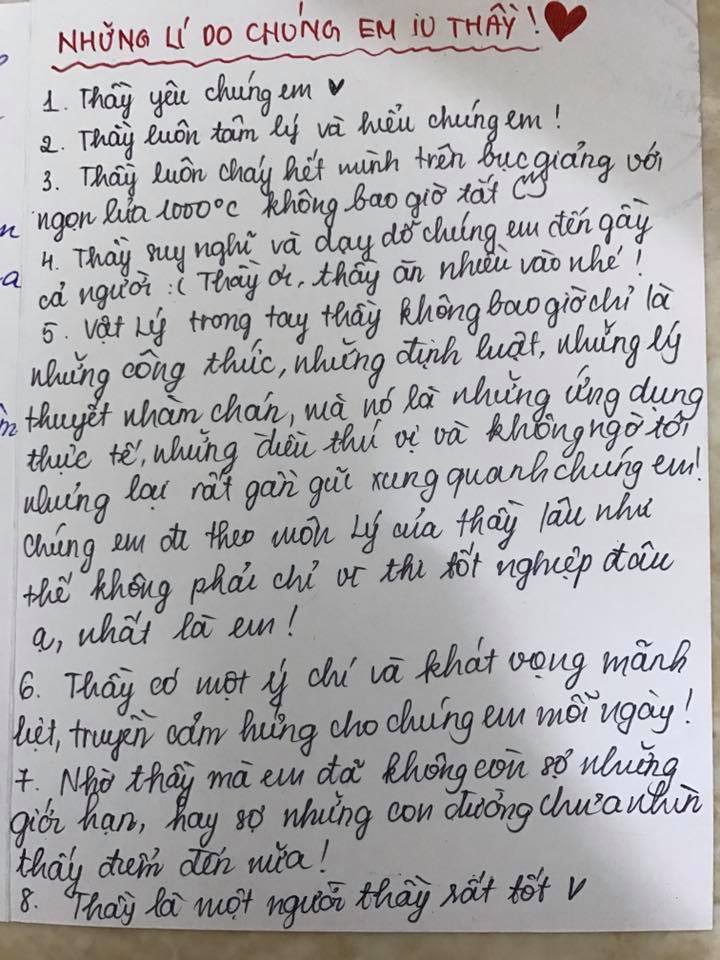 NHỮNG LÍ DO CHÚNG EM IU THẦY! ❤
1. Thầy yêu chúng em ♥
2. Thầy luôn tâm lý và hiểu chúng em!
3. Thầy luôn cháy hết mình trên bục giảng với
ngọn lửa 1000°C không bao giờ tắt
4. Thầy suy nghĩ và dạy dỗ chúng em đến gầy
cả người :( Thầy ơi, thầy ăn nhiều vào nhé!
5. Vật Lý trong tay thầy không bao giờ chỉ là
những công thức, những định luật, những lý
thuyết nhàm chán, mà nó là những ứng dụng
thực tế, những điều thú vị và không ngờ tới
nhưng lại rất gần gũi xung quanh chúng em!
Chúng em đi theo môn Lý của thầy lâu như
thế không phải chỉ vì thi tốt nghiệp đâu
ạ, nhất là em!
6. Thầy có một ý chí và khát vọng mãnh
liệt, truyền cảm hứng cho chúng em mỗi ngày!
7. Nhờ thầy mà em đã không còn sợ những
giới hạn, hay sợ những con đường chưa nhìn
thấy điểm đến nữa!
8. Thầy là một người thầy rất tốt ♥